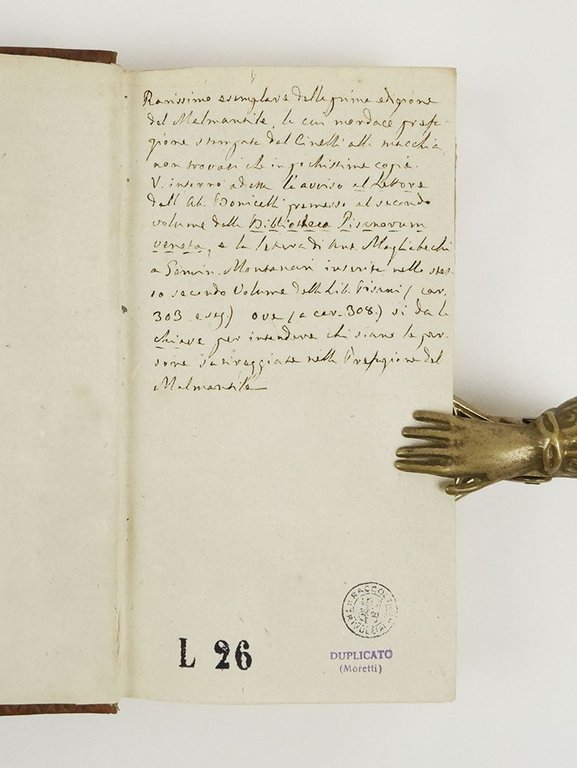 Rarissimo esemplare della prima edizione
del Malmantile, la cui mordace prefa-
zione stampata dal Cinelli alla macchia
non trovasi che in pochissime copie.
V. intorno a detta l'avviso al Lettore
dell'Ab. Bonicelli premesso al secondo
volume della Bibliotheca Pisanorum
veneta, e la lettera di Ant. Magliabechi
a Gemin. Montanari inserita nello stes-
so secondo Volume della Lib. Pisani (car.
303. e seg.) ove (a car. 308.) si da la
chiave per intendere chi siano le per-
sone satireggiate nella Prefazione del
Malmantile
L 26
DUPLICATO
(Moretti)